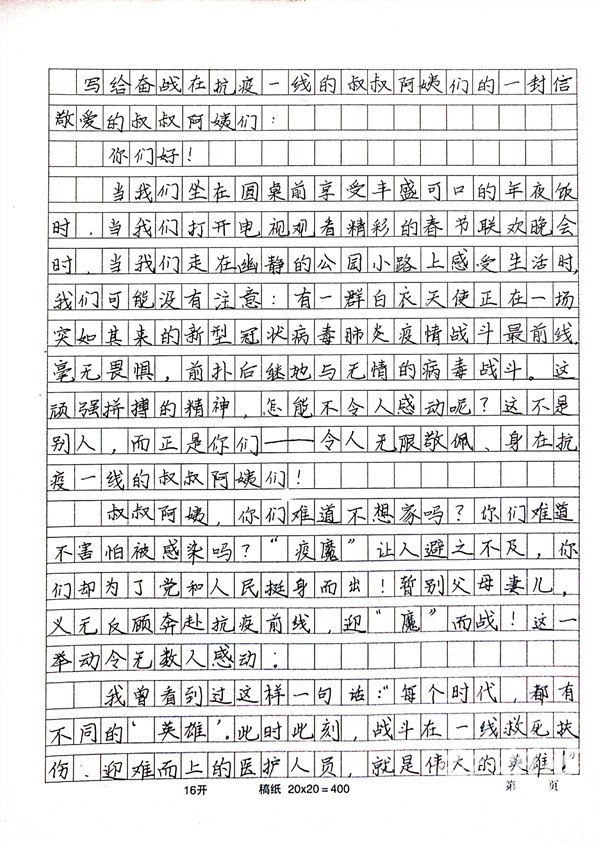 写给奋战在抗疫一线的叔叔阿姨们的一封信
敬爱的叔叔阿姨们：
你们好！
当我们坐在圆桌前享受丰盛可口的年夜饭
时，当我们打开电视观看精彩的春节联欢晚会
时，当我们走在幽静的公园小路上感受生活时，
我们可能没有注意：有一群白衣天使正在一场
突如其来的新型冠状病毒肺炎疫情战斗最前线，
毫无畏惧，前扑后继地与无情的病毒战斗。这
顽强拼搏的精神，怎能不令人感动呢？这不是
别人，而正是你们——令人无限敬佩、身在抗
疫一线的叔叔阿姨们！
叔叔阿姨，你们难道不想家吗？你们难道
不害怕被感染吗？“疫魔”让人避之不及，你
们却为了党和人民挺身而出！暂别父母妻儿，
义无反顾奔赴抗疫前线，迎“魔”而战！这一
举动令无数人感动：
我曾看到过这样一句话：“每个时代，都有
不同的‘英雄’。此时此刻，战斗在一线救死扶
伤、迎难而上的医护人员，就是伟大的英雄！”
16开 稿纸 20x20=400 第 页